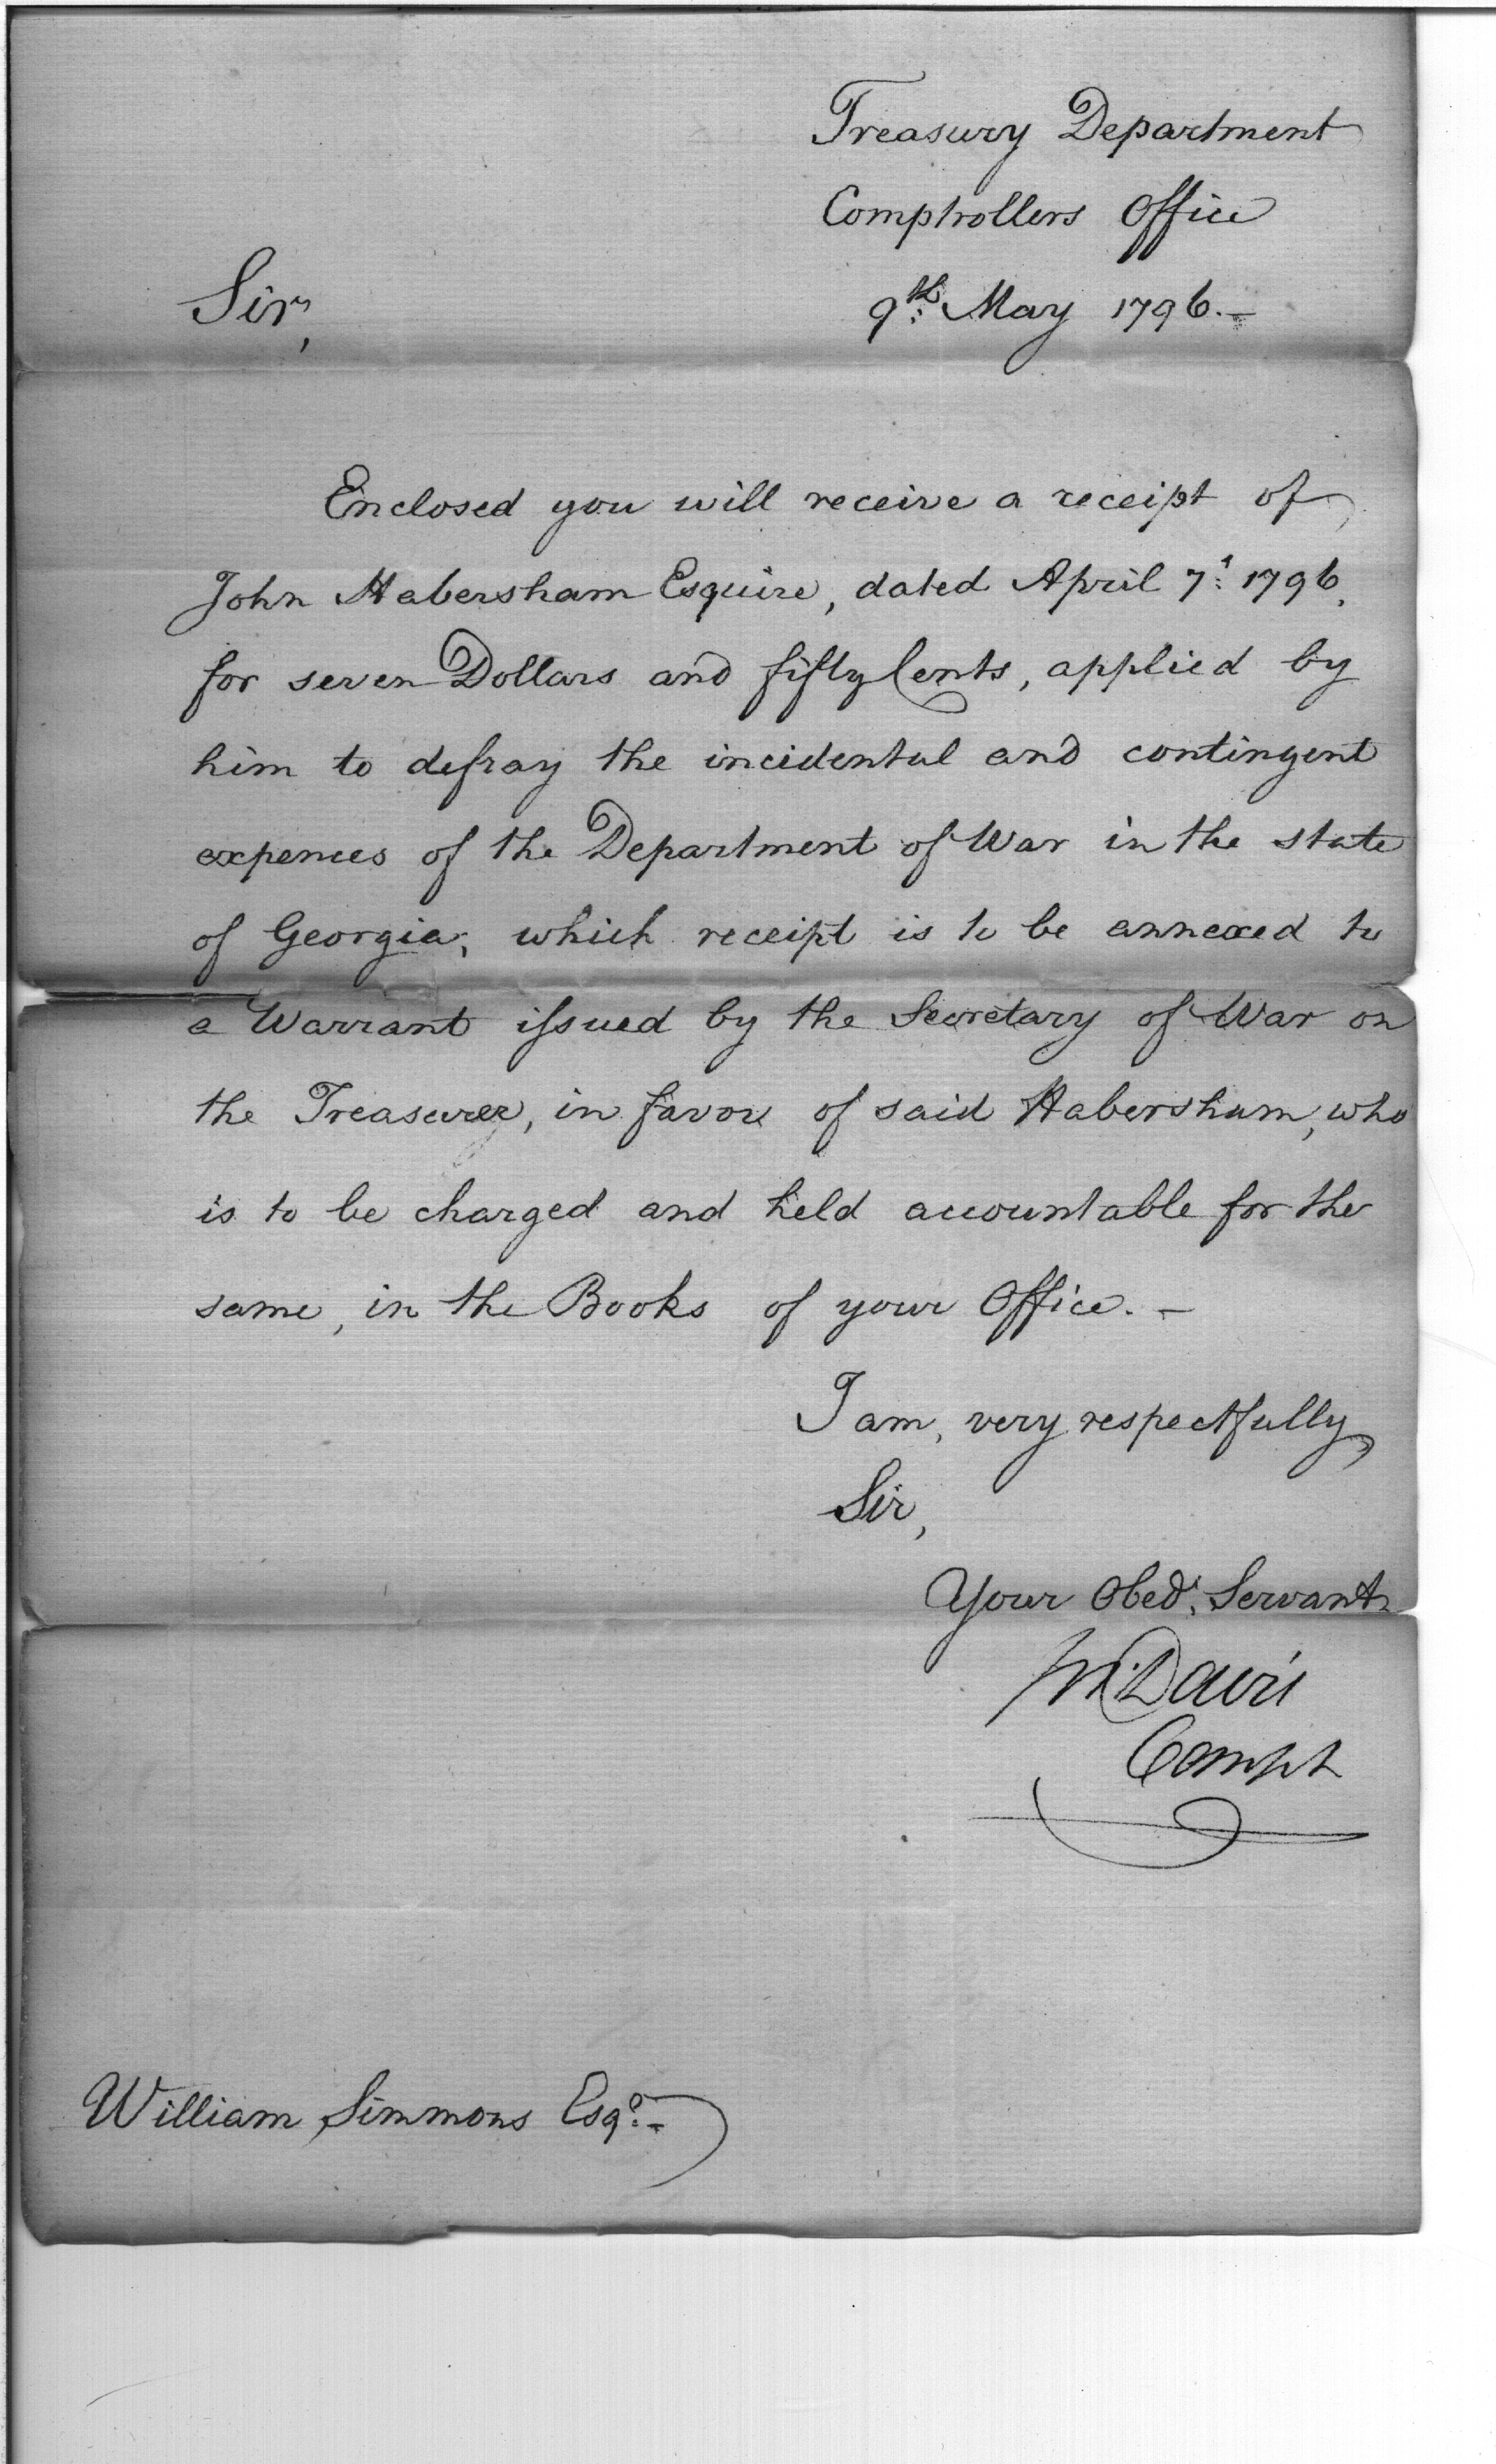 Treasury Department
Comptrollers Office
9th May 1796.—
Sir,
Enclosed you will receive a receipt of
John Habersham Esquire, dated April 7t 1796,
for seven Dollars and fifty Cents, applied by
him to defray the incidental and contingent
expences of the Department of War in the state
of Georgia; which receipt is to be annexed to
a Warrant issued by the Secretary of War on
the Treasurer, in favor of said Habersham, who
is to be charged and held accountable for the
same, in the Books of your Office.—
I am, very respectfully
Sir,
Your Obedt Servant
Jn. Davis
Compt
William Simmons Esqe.—